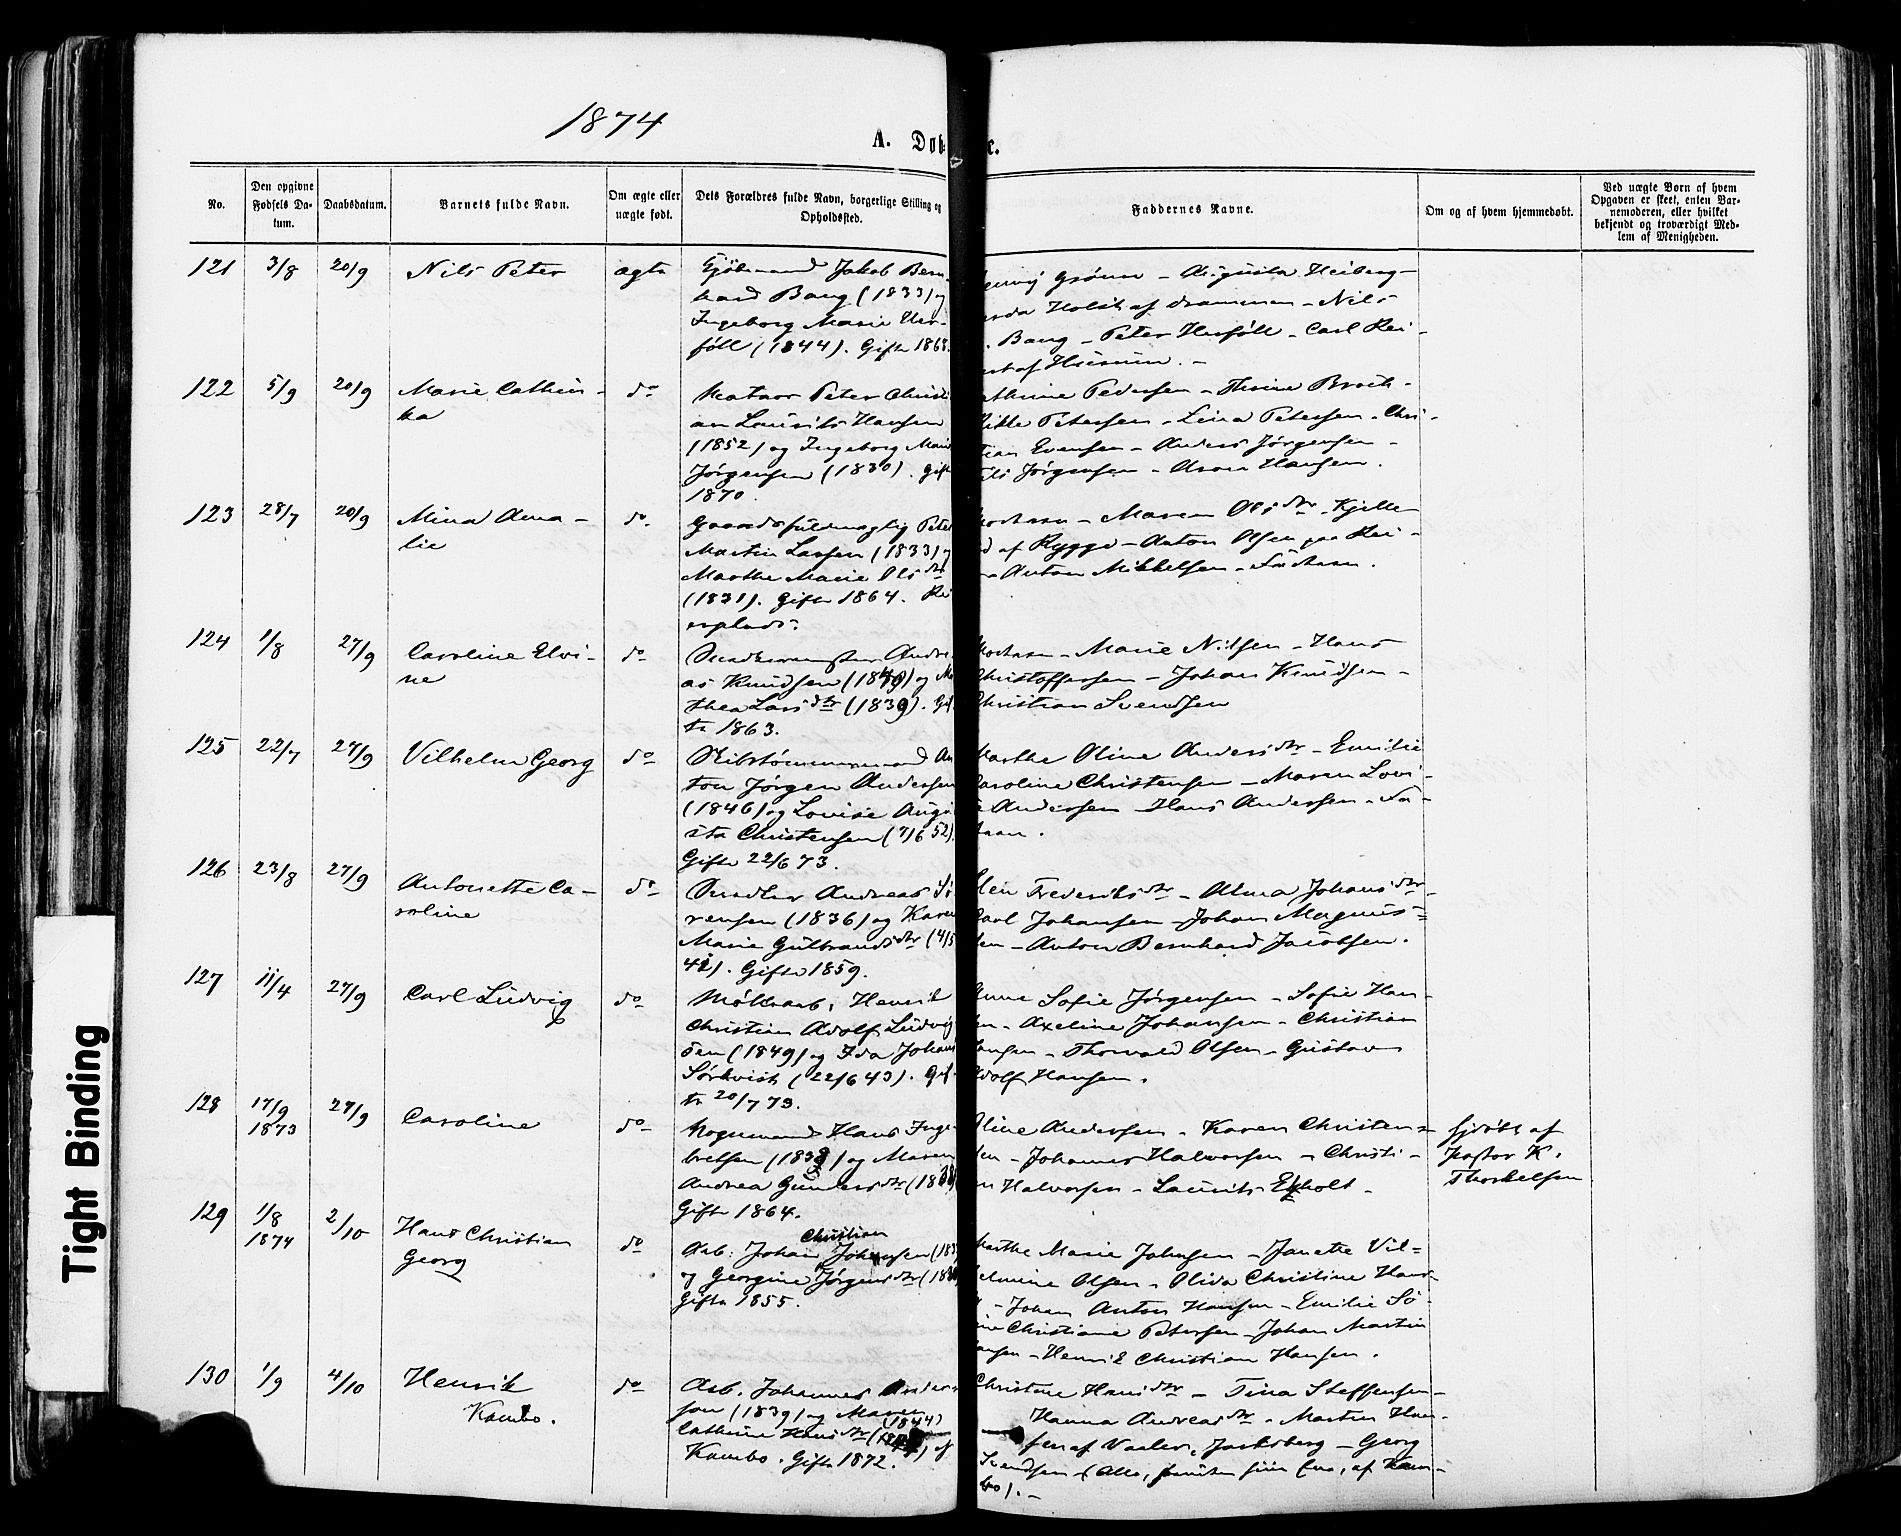 1874
A. Døb
e.
No.
Den opgivne Fødsels Da-tum.
Daabsdatum.
Barnets fulde Navn.
Om ægte eller uægte født.
Dets Forældres fulde Navn, borgerlige Stilling og Opholdssted.
Faddernes Navne.
Om og af hvem hjemmedøbt.
Ved uægte Børn af hvem Opgaven er skeet, enten Bar-nemoderen, eller hvilket bekjendt og troværdigt Med-lem af Menigheden.
121 3/8 20/9 Nils Peter ægte
Jakob Bern-
hard Bang (1833) og
Ingeborg Marie Her-
föll (1844). Gifte 1868.
Grönn – Augusta Heiberg –
Holst af Drammen – Nils
Bang – Peter Herföll – Carl Rei-
af Húsum. –
122 5/9 20/9 Marie Cathin-
ka do
Peter Christi
an Laurits Hansen
(1852) og Ingeborg Marie
Jørgensen (1830). Gift
1870.
athrine Pedersen – Thrine Broch –
Petersen – Lina Petersen – Chri-
tian Evensen – Anders Jørgensen –
ils Jørgensen – Aron Hansen.
123 28/7 20/9 Mina Ama-
lie do
Gaardsfuldmægtig Peter
Martin Larsen (1833) og
Marthe Marie Olsdtr
(1831). Gifte 1864. Rei
erplads.
Moderen – Maren Olsdtr Kjelle
d af Rygge – Anton Olsen paa Rei-
– Anton Mikkelsen – Faderen.
124 1/8 27/9 Caroline Elvi-
ne do
Snedkermester Andre
as Knudsen (1840) og Ma
thea Larsdtr (1839). Gif
te 1863.
Moderen – Marie Nilsen – Hans
Christoffersen – Johan Knudsen –
Christian Svendsen
125 22/7 27/9 Vilhelm Georg do
Skibstømmermand An
ton Jørgen Andersen
(1846) og Lovise Augú
sta Christensen (7/6 52).
Gifte 22/6 73.
Marthe Oline Andersdtr – Emilie
Caroline Christensen – Maren Lovi-
e Andersen – Hans Andersen – Fa-
deren.
126 23/8 27/9 Antonette Ca-
roline do
Snedker Andreas Sö
rensen (1836) og Karen
Marie Gulbrandsdtr (4/5
41). Gifte 1859.
Elen Frederiksdtr – Alma Johansdtr –
Carl Johansen – Johan Magnus-
sen – Anton Bernhard Jacobsen.
127 11/4 27/9 Carl Lúdvig do
Møllearb. Henrik
Christian Adolf Lúdvig
sen (1849) og Ida Johans
Sörkvist (22/6 43). Gif
te 20/7 73.
Anne Sofie Jørgensen – Sofie Han-
sen – Axeline Johansen – Christian
Hansen – Thorvald Olsen – Gústav
Adolf Hansen.
128 17/9
1873 27/9 Caroline do
Hans Inge-
bretsen (1838) og Maren
Andrea Gundersdtr (1838)
Gifte 1864.
Oline Andersen – Karen Christen-
sen – Johannes Halvorsen – Christi-
an Halvorsen – Laurits Ekholt –
hjdöbt af
Pastor K.
Thorkelsen
129 1/8
1874 2/10 Hans Christian
Georg do
Christian
Arb. Johan Johansen (183
og Georgine Jørgensdtr (183
Gifte 1855.
Marthe Marie Johnsen – Janette Vil-
helmine Olsen – Olida Christine Han-
– Johan Anton Hansen – Emilie Sö-
ine Christiane Petersen – Johan Martin
ansen – Henrik Christian Hansen.
130 1/9 4/10 Henrik
Kambo. do
Arb. Johannes Anders
son (1839) og Maren
(1844)
Cathrine Hansdtr af
Kambo. Gifte 1872.
Christine Hansdtr – Tina Steffensen –
Hanna Andreasdtr – Martin Han-
sen af Vaaler, Jacksberg – Georg
Svendsen – (Alle, af Kam-
bo). –
Tight Binding